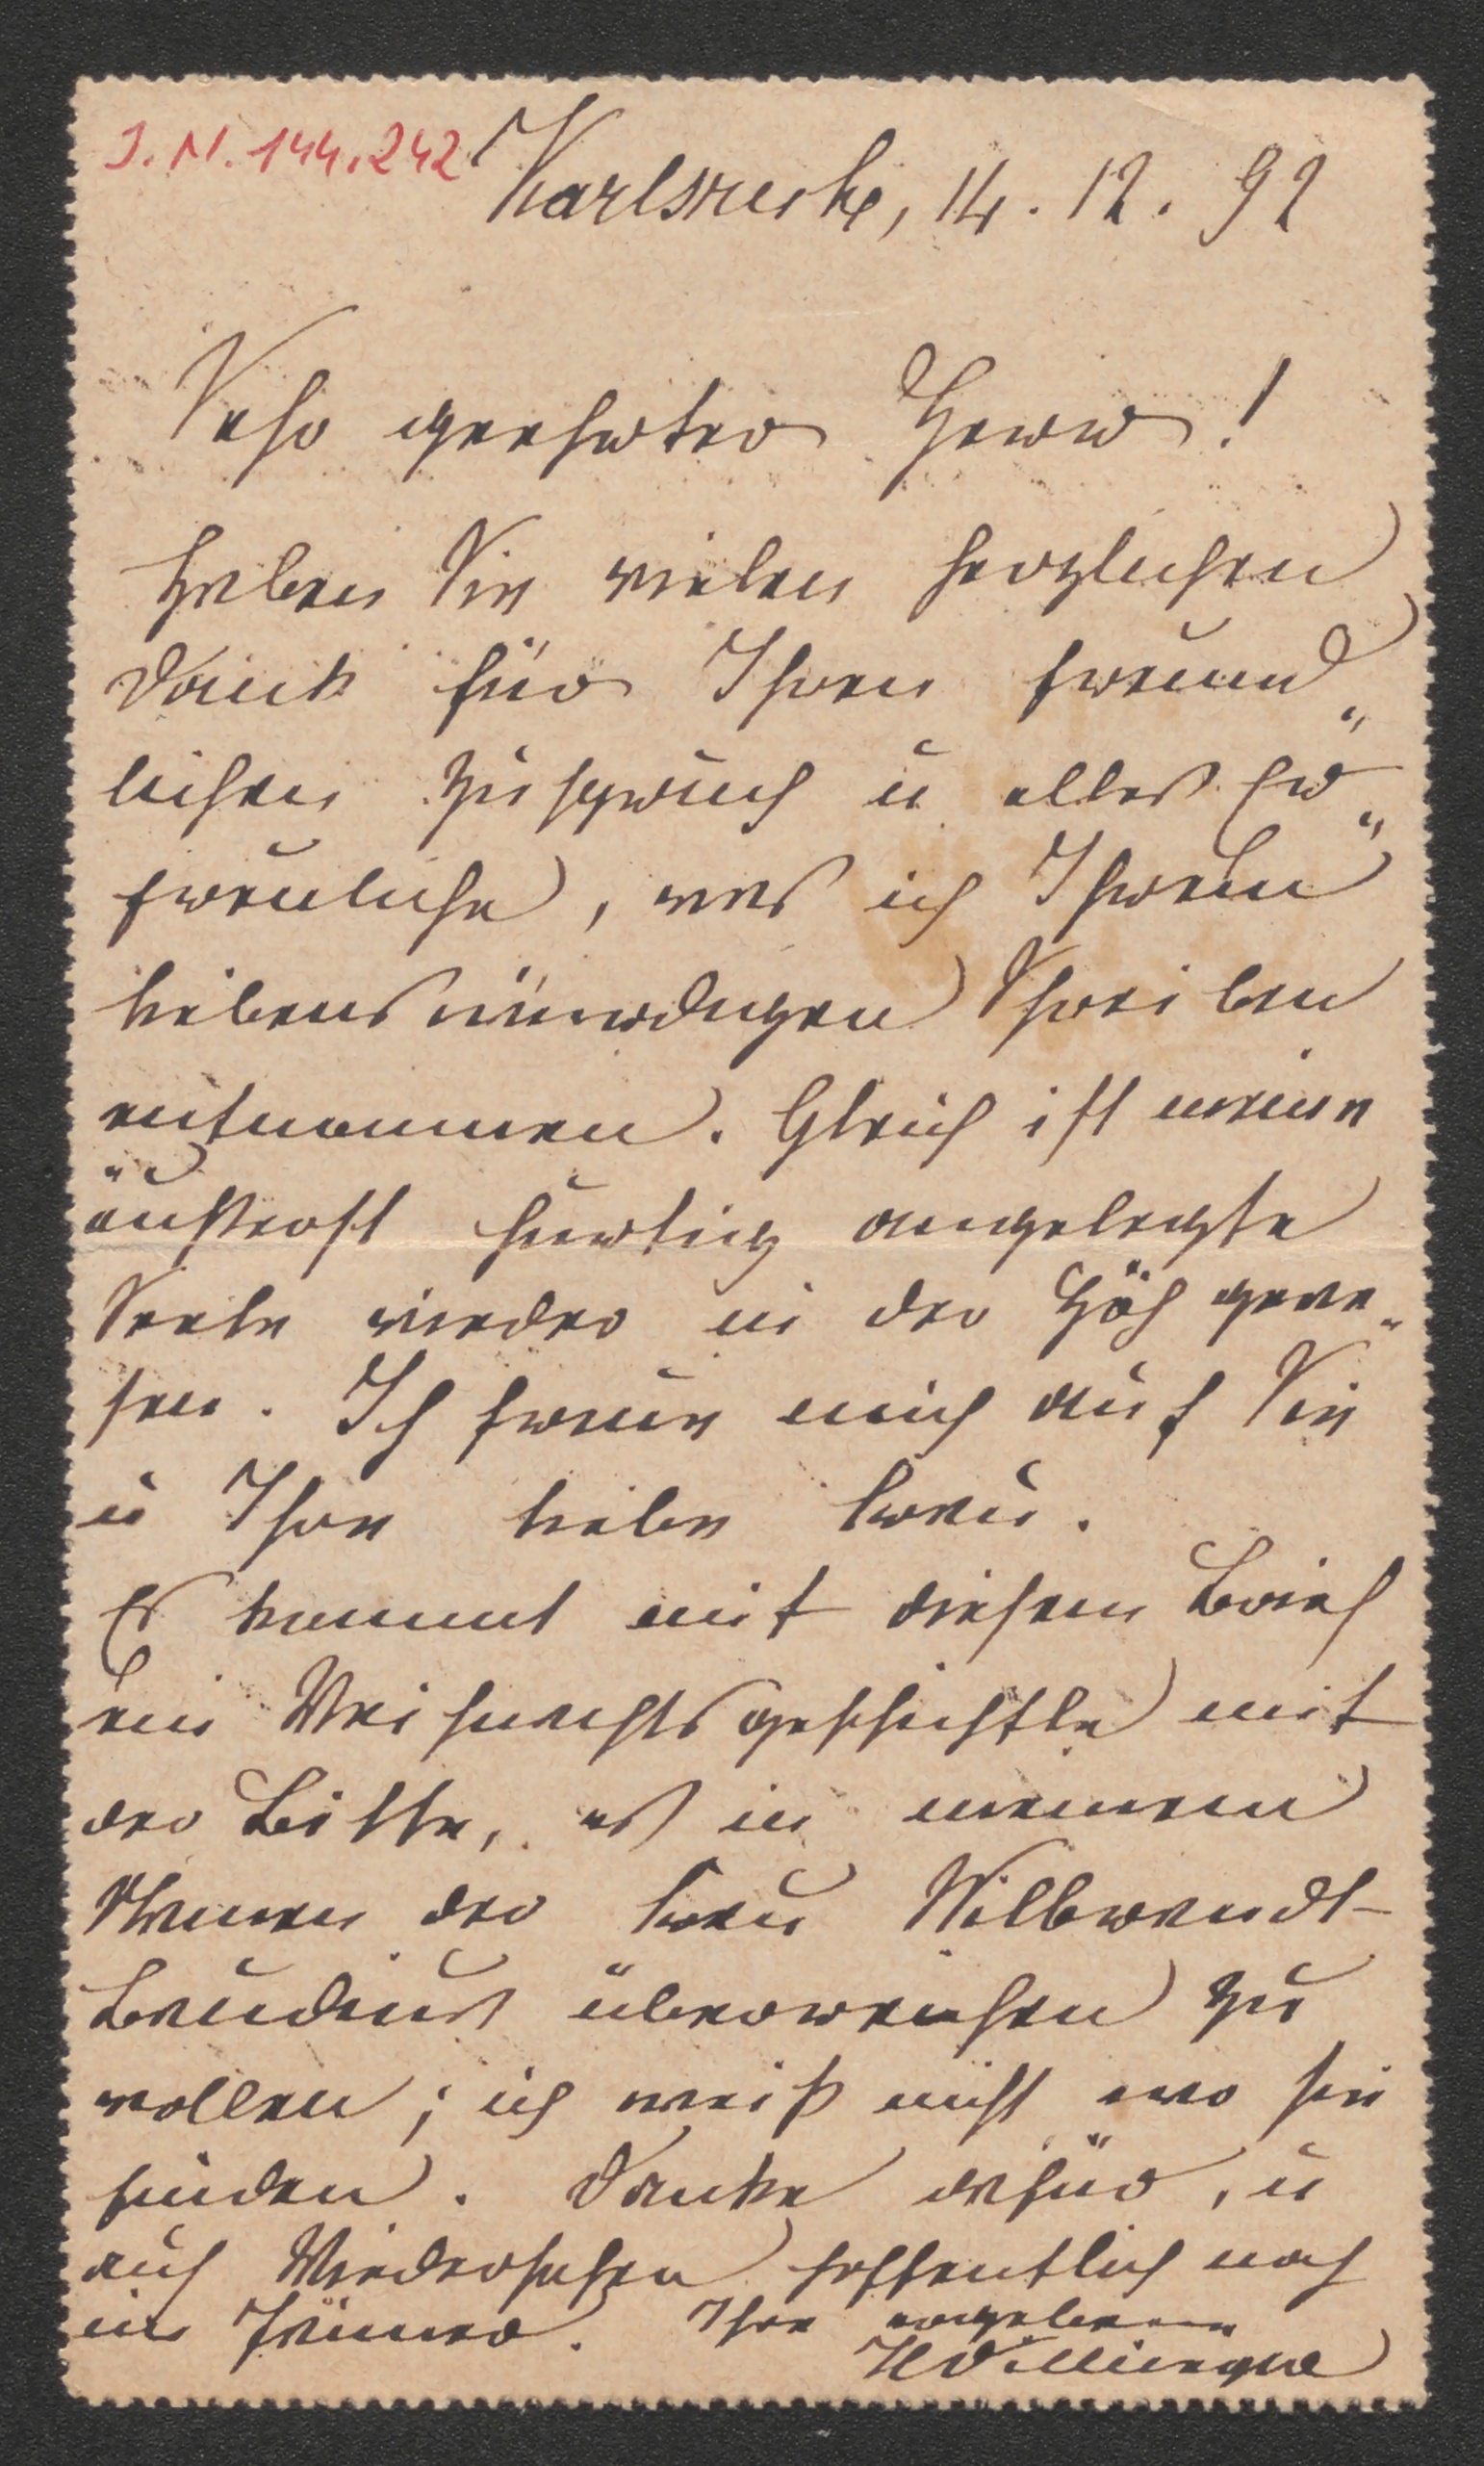 J. N. 144.242
Karlsruhe, 14. 12. 92
Sehr geehrter Herr!
Haben Sie vielen herzlichen
Dank für Ihren freund„
lichen Zuspruch u alles Er„
freuliche, was ich Ihrem
liebenswürdigen Schreiben
entnommen. Gleich ist meine
äußerst hurtig angelegte
Seele wieder in der Höh gewe„
sen. Ich freue mich auf Sie
u Ihre liebe Frau.
Es kommt mit diesem Brief
ein Weihnachtsgeschichtle mit
der Bitte, es in meinem
Namen der Frau Wilbrandt-
Baudius überreichen zu
wollen; ich weiß nicht wo sie
finden. Danke dafür, u
auf Wiedersehen hoffentlich noch
im Jänner. Ihre ergebene
HVillinger